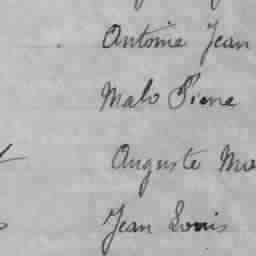 Antoine Jean
Malo Pierre
Auguste Ma
Jean Louis